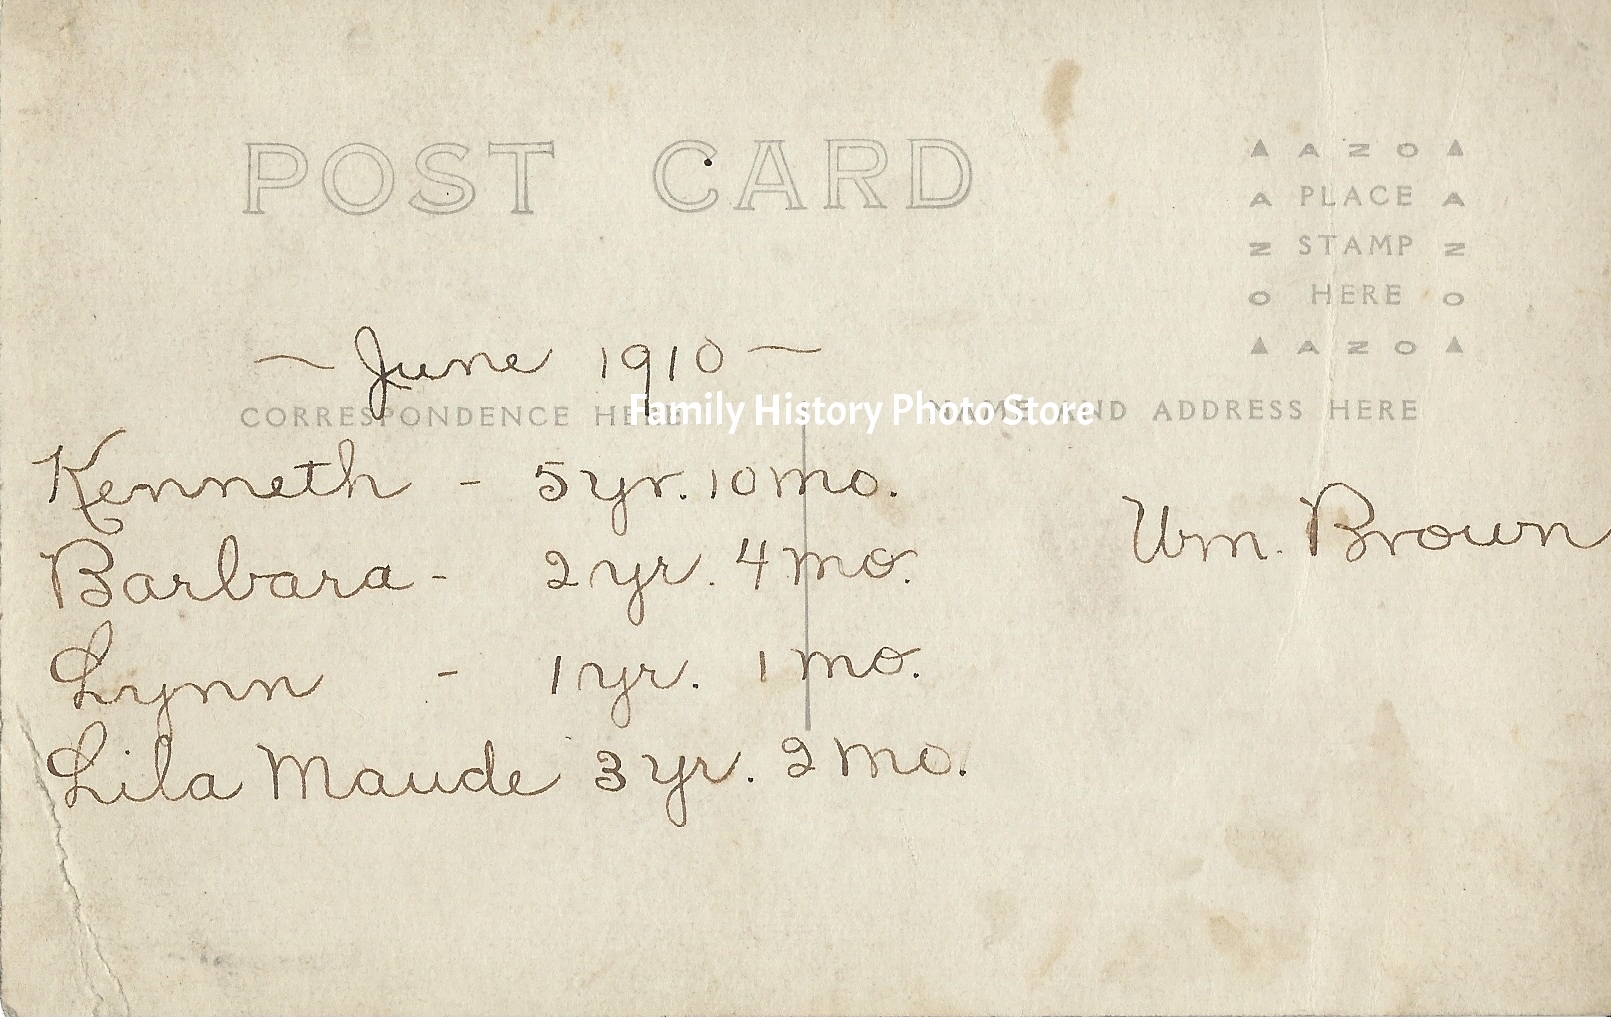 POST CARD
▲ A Z O ▲
A PLACE A
Z STAMP Z
O HERE O
▲ A Z O ▲
~ June 1910 ~
CORRESPONDENCE HERE
NAME AND ADDRESS HERE
Family History Photo Store
Kenneth - 5 yr. 10 mo.
Barbara - 2 yr. 4 mo.
Lynn - 1 yr. 1 mo.
Lila Maude 3 yr. 2 mo.
Wm. Brown